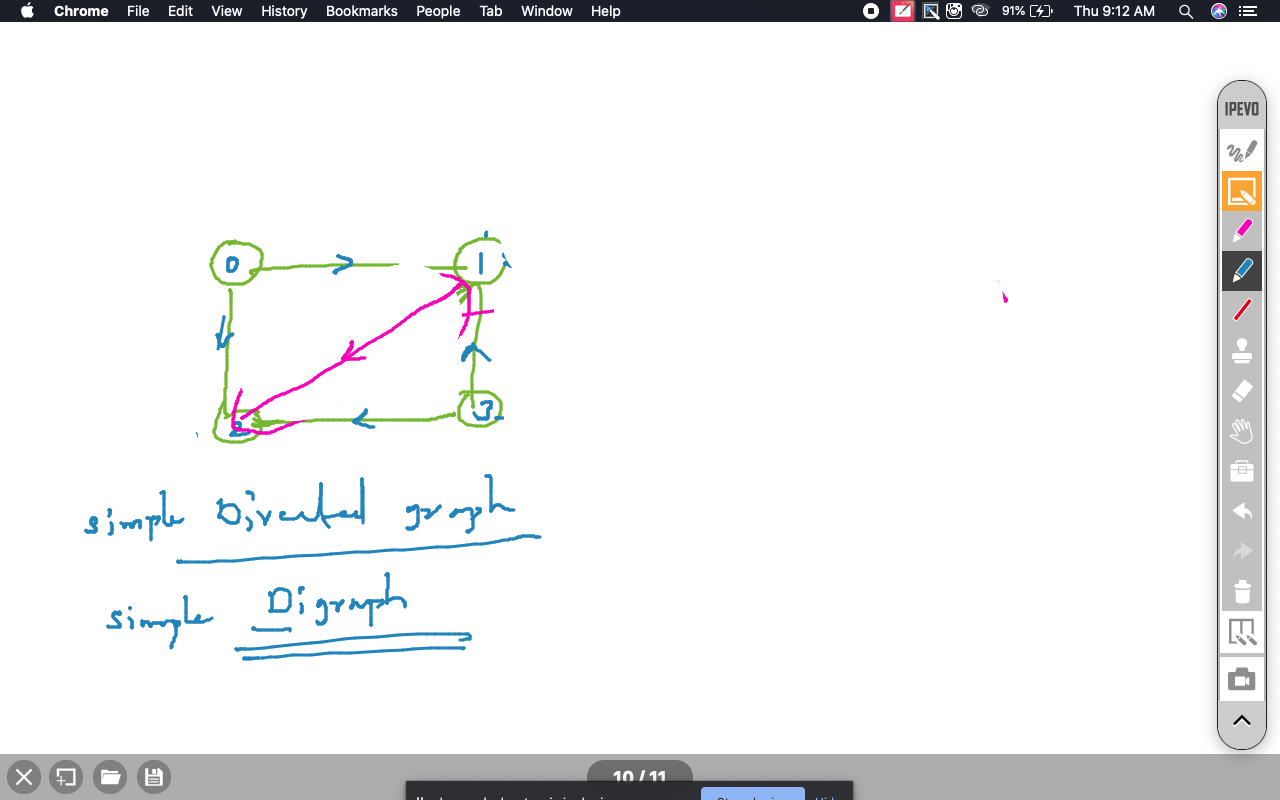 Chrome File Edit View History Bookmarks People Tab Window Help 91% Thu 9:12 AM
IPEVO
0 1
2 3
simple Directed graph
simple Digraph
10 / 11